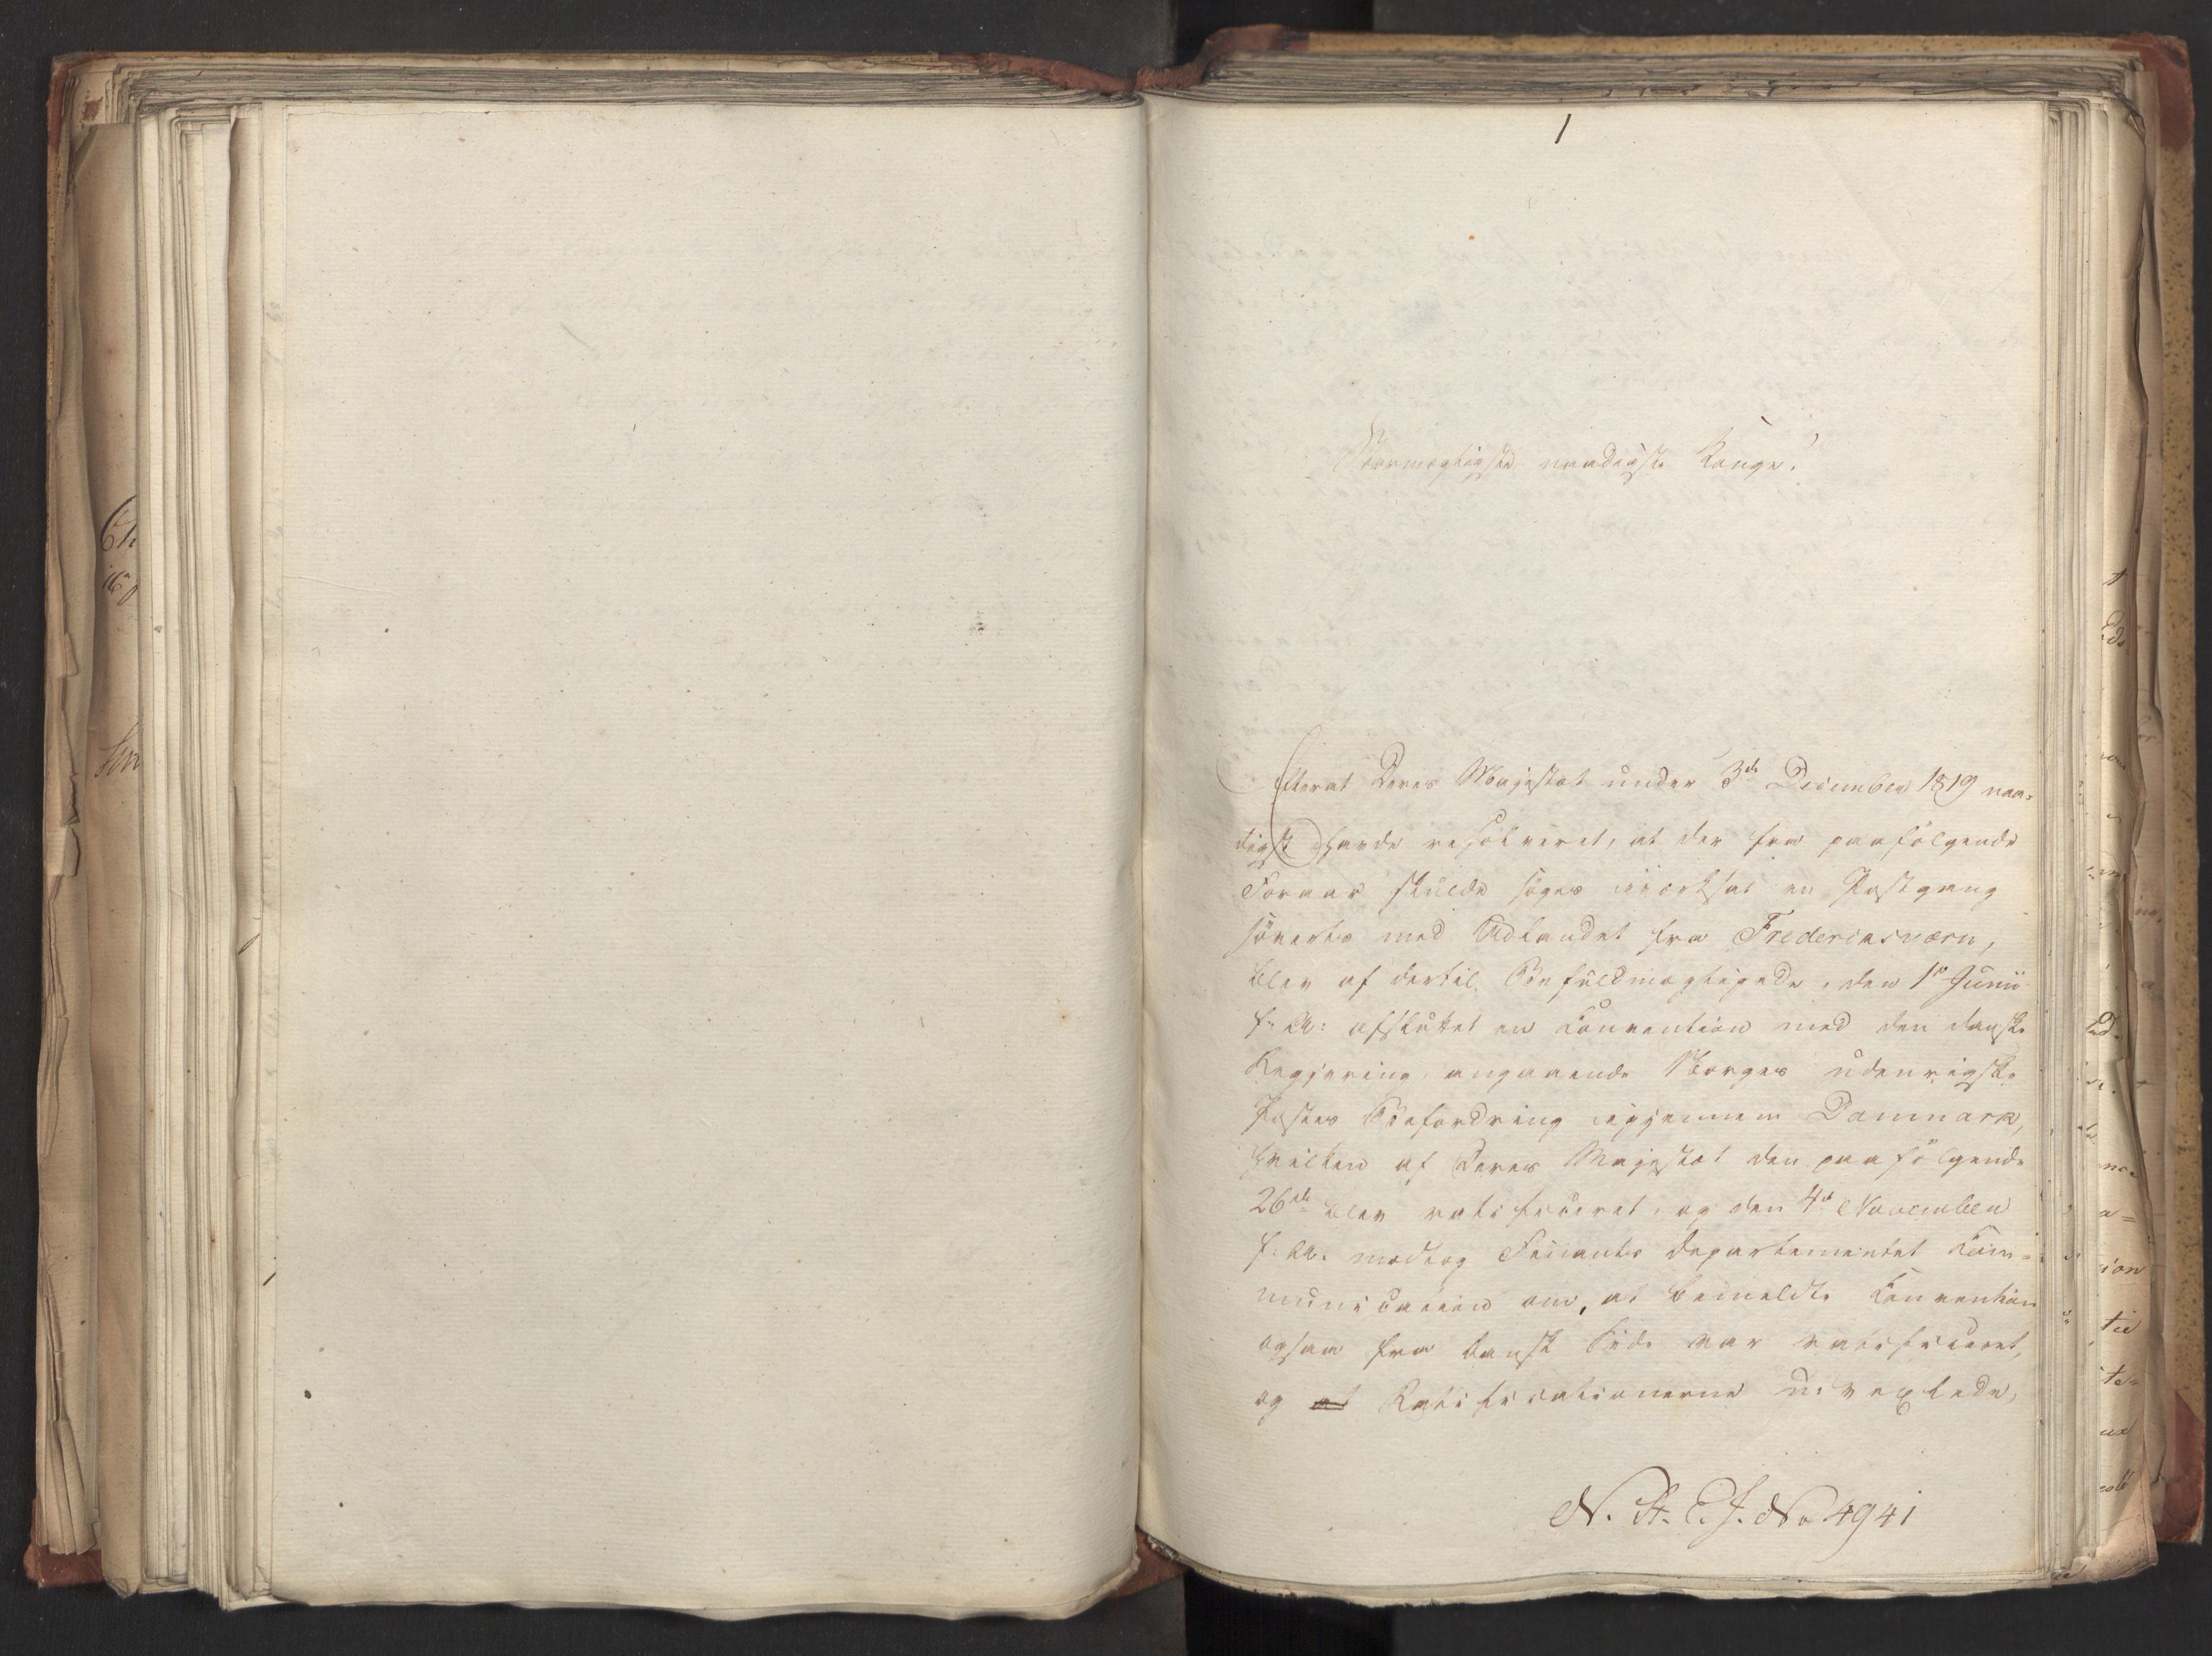 1
Stormægtigste naadigste Konge!
Efterat Deres Majestæt under 3de December 1819 naa=
digst havde resolveret, at der fra paafølgende
Foraar skulde søges iværksat en Postgang
søverts med Udlandet fra Fredericsværn,
blev af dertil Befuldmægtigede, den 1ste Junii
f: A: afsluttet en Convention med den danske
Regjering angaaende Norges udenrigske
Posters Befordring igjennem Danmark,
hvilken af Deres Majestæt den paafølgende
26de blev ratificeret, og den 4de November
f: A: modtog Finants Departementet Com=
munication om, at bemeldte Convention
ogsaa fra dansk Side var ratificeret,
og at Ratificationerne udvexlede,
N. St. E. J. No 4941